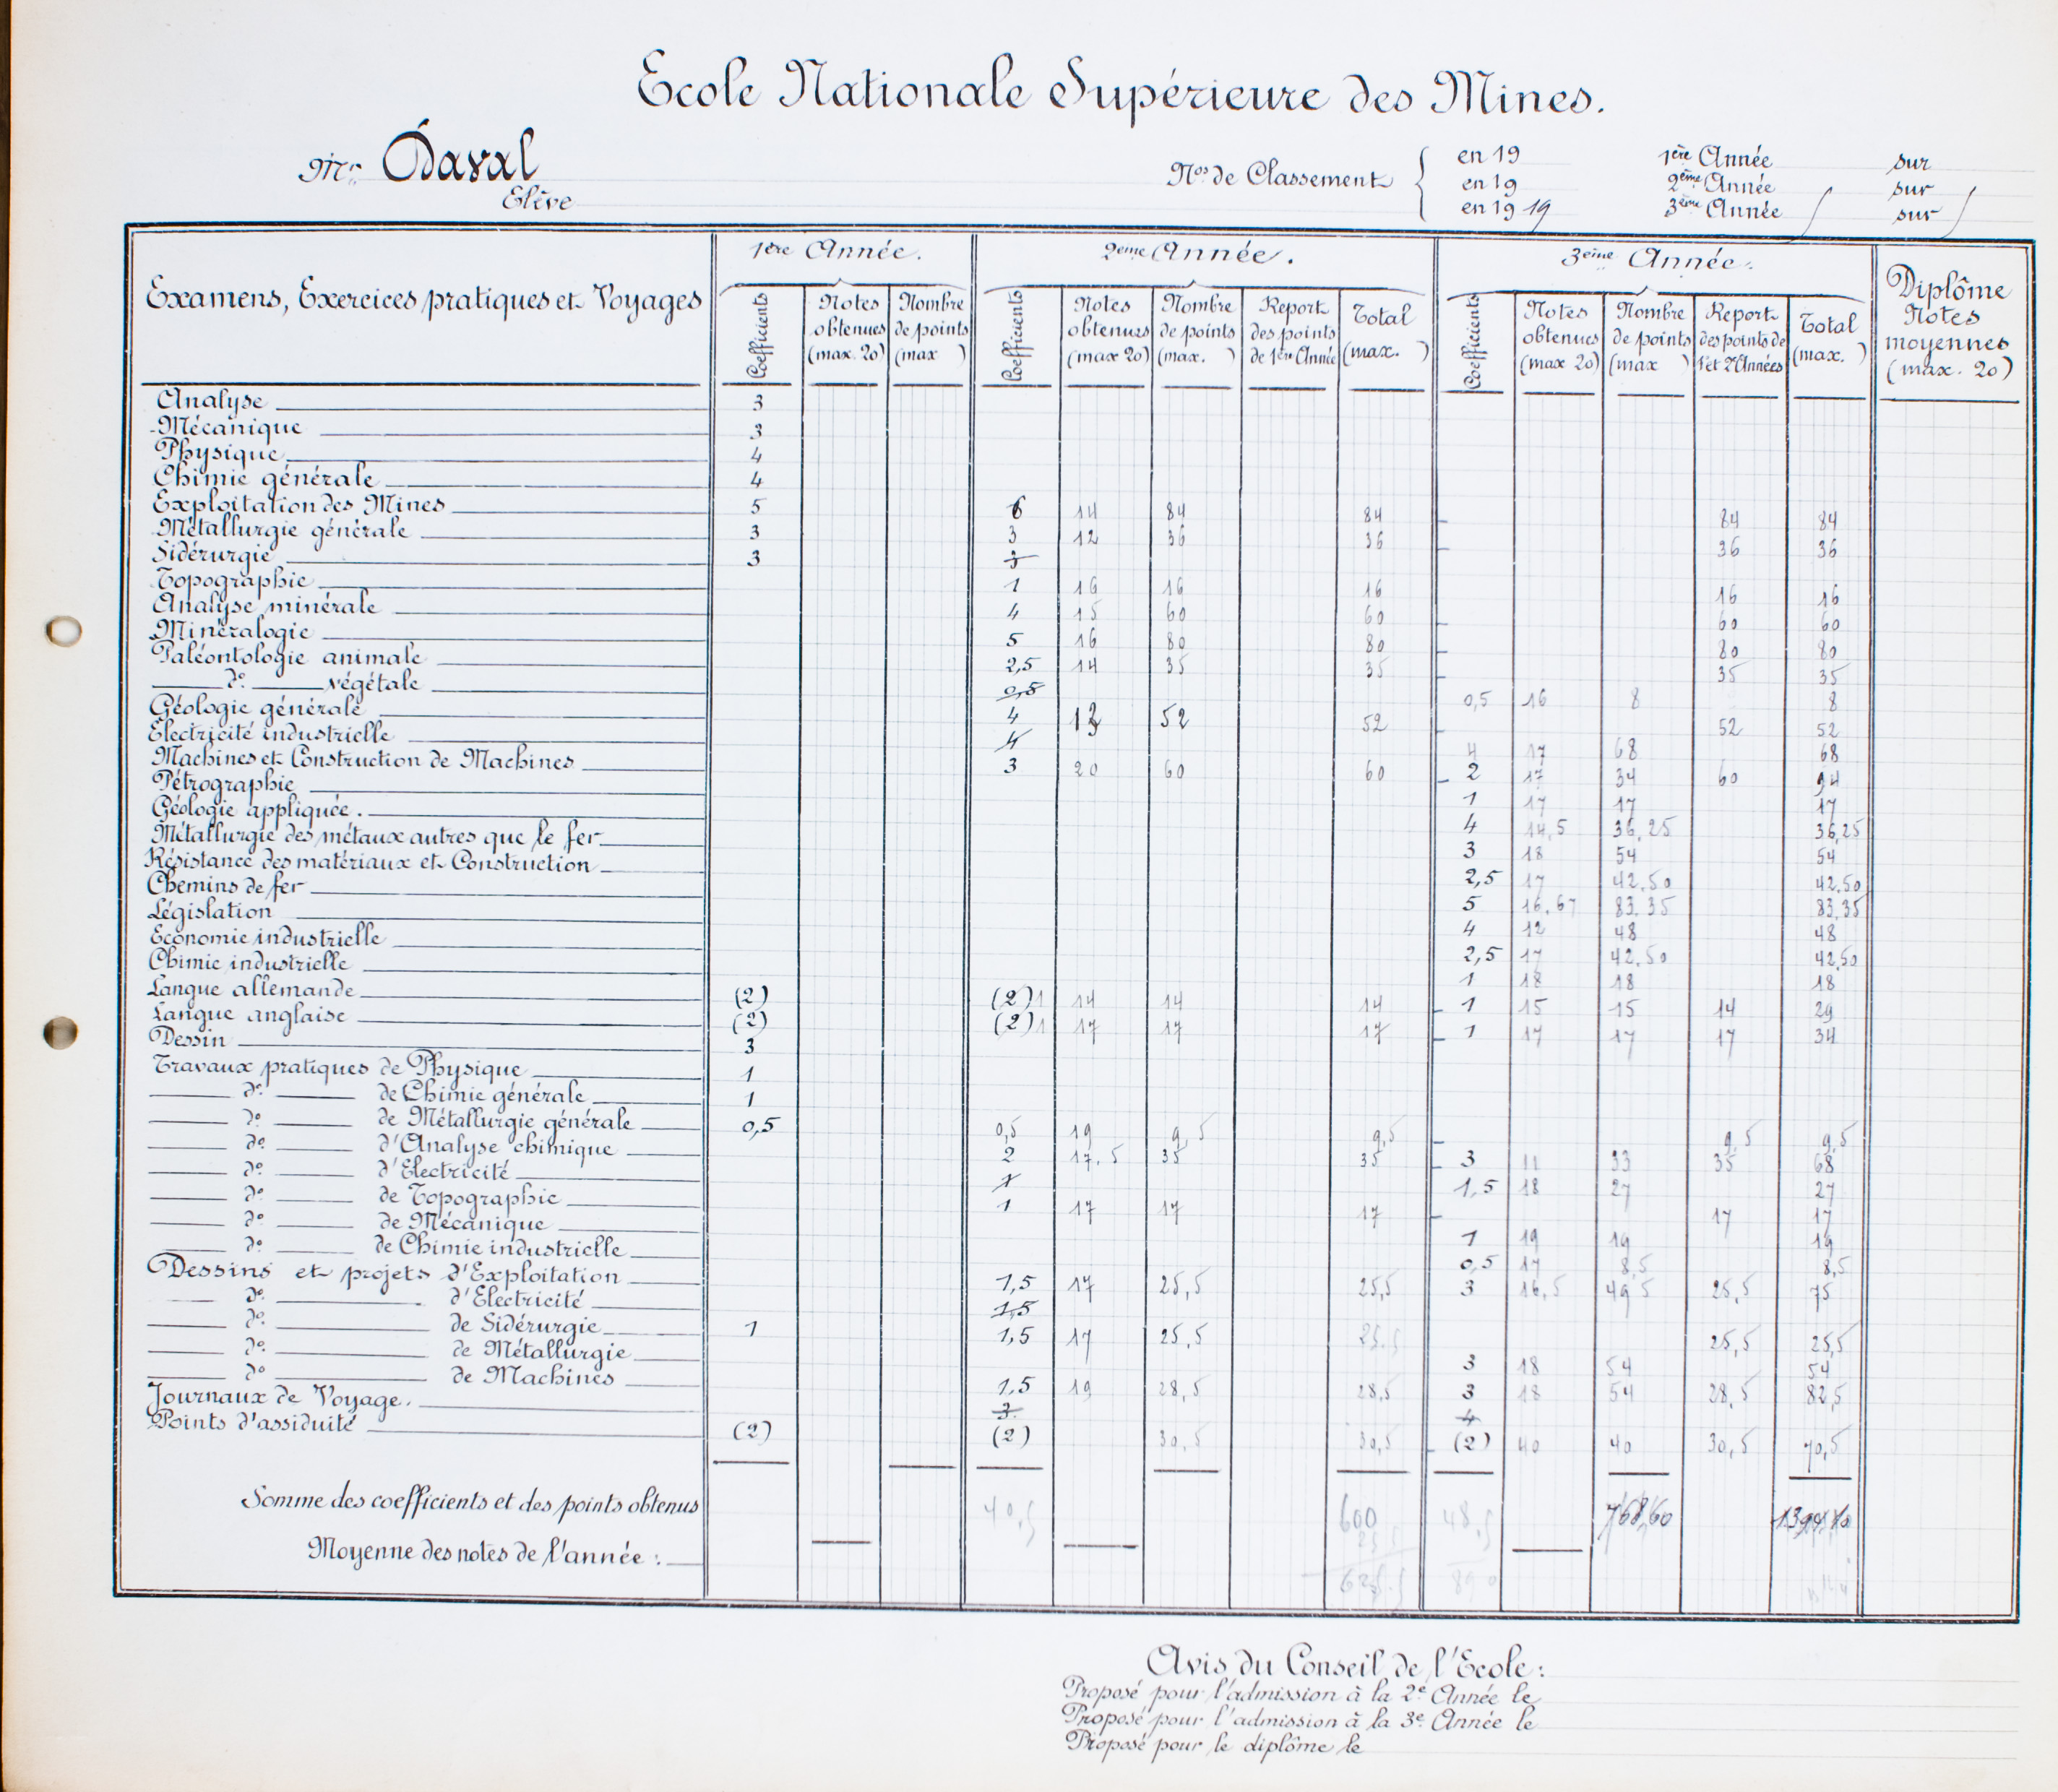 Ecole Nationale Supérieure des Mines.
Mr. Daval
Elève
Nos de Classement
en 19 1ère Année sur
en 19 2ème Année sur
en 19 19 3ème Année sur
Examens, Exercices pratiques et Voyages
1ère Année. 2ème Année. 3ème Année.
Diplôme Notes moyennes (max. 20)
Coefficients Notes obtenues (max. 20) Nombre de points (max )
Coefficients Notes obtenues (max 20) Nombre de points (max. ) Report des points de 1ère Année Total (max. )
Coefficients Notes obtenues (max 20) Nombre de points (max ) Report des points de 1e et 2e Années Total (max. )
Analyse 3
Mécanique 3
Physique 4
Chimie générale 4
Exploitation des Mines 5 6 14 84 84 84 84
Métallurgie générale 3 3 12 36 36 36 36
Sidérurgie 3 3
Topographie 1 16 16 16 16 16
Analyse minérale 4 15 60 60 60 60
Minéralogie 5 16 80 80 80 80
Paléontologie animale 2,5 14 35 35 35 35
do végétale 0,5 0,5 16 8 8
Géologie générale 4 13 52 52 52 52
Electricité industrielle 4 4 17 68 68
Machines et Construction de Machines 3 20 60 60 2 17 34 60 94
Pétrographie 1 17 17 17
Géologie appliquée. 4 14,5 36,25 36,25
Métallurgie des métaux autres que le fer 3 18 54 54
Résistance des matériaux et Construction 2,5 17 42,50 42,50
Chemins de fer 5 16,67 83,35 83,35
Législation 4 12 48 48
Economie industrielle 2,5 17 42,50 42,50
Chimie industrielle 1 18 18 18
Langue allemande (2) (2) 1 14 14 14 1 15 15 14 29
Langue anglaise (2) (2) 1 17 17 17 1 17 17 17 34
Dessin 3
Travaux pratiques de Physique 1
do de Chimie générale 1
do de Métallurgie générale 0,5 0,5 19 9,5 9,5 9,5 9,5
do d'Analyse chimique 2 17,5 35 35 3 11 33 35 68
do d'Electricité 1 1,5 18 27 27
do de Topographie 1 17 17 17 17 17
do de Mécanique 1 19 19 19
do de Chimie industrielle 0,5 17 8,5 8,5
Dessins et projets d'Exploitation 1,5 17 25,5 25,5 3 16,5 49,5 25,5 75
do d'Electricité 1,5
do de Sidérurgie 1 1,5 17 25,5 25,5 25,5 25,5
do de Métallurgie 3 18 54 54
do de Machines 1,5 19 28,5 28,5 3 18 54 28,5 82,5
Journaux de Voyage. 3 4
Points d'assiduité (2) (2) 30,5 30,5 (2) 40 40 30,5 70,5
Somme des coefficients et des points obtenus 40,5 600 48,5 768,60
Moyenne des notes de l'année :
Avis du Conseil de l'Ecole :
Proposé pour l'admission à la 2e Année le
Proposé pour l'admission à la 3e Année le
Proposé pour le diplôme le